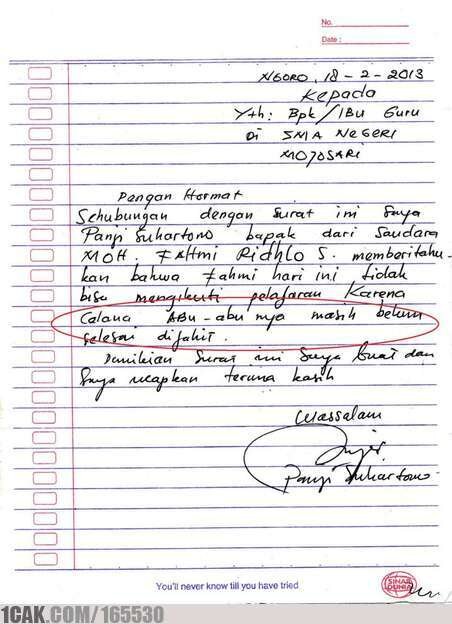 No.
Date :
NGORO, 18 - 2 - 2013
Kepada
Yth: Bpk/IBu Guru
Di SMA NEGERI
MOJOSARI
Dengan Hormat
Sehubungan dengan surat ini Saya
Panji Suhartono bapak dari Saudara
MOH. FAHmi Ridhlo S. memberitahu-
kan bahwa Fahmi hari ini tidak
bisa mengikuti pelajaran Karena
Celana ABu-abu nya masih belum
selesai dijahit.
Demikian Surat ini Saya buat dan
Saya ucapkan terima kasih
Wassalam
Panji Suhartono
You'll never know till you have tried
SINAR DUNIA
1CAK.COM/165530